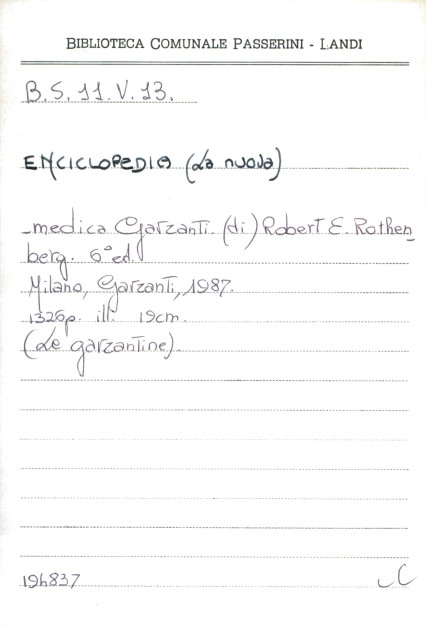 BIBLIOTECA COMUNALE PASSERINI - LANDI
B.S. 11. V. 13.
ENCICLOPEDIA (La nuova)
-medica Garzanti. (di) Robert E. Rothen
berg. 6° ed.
Milano, Garzanti, 1987.
1326p. ill. 19cm.
(Le garzantine).
194837